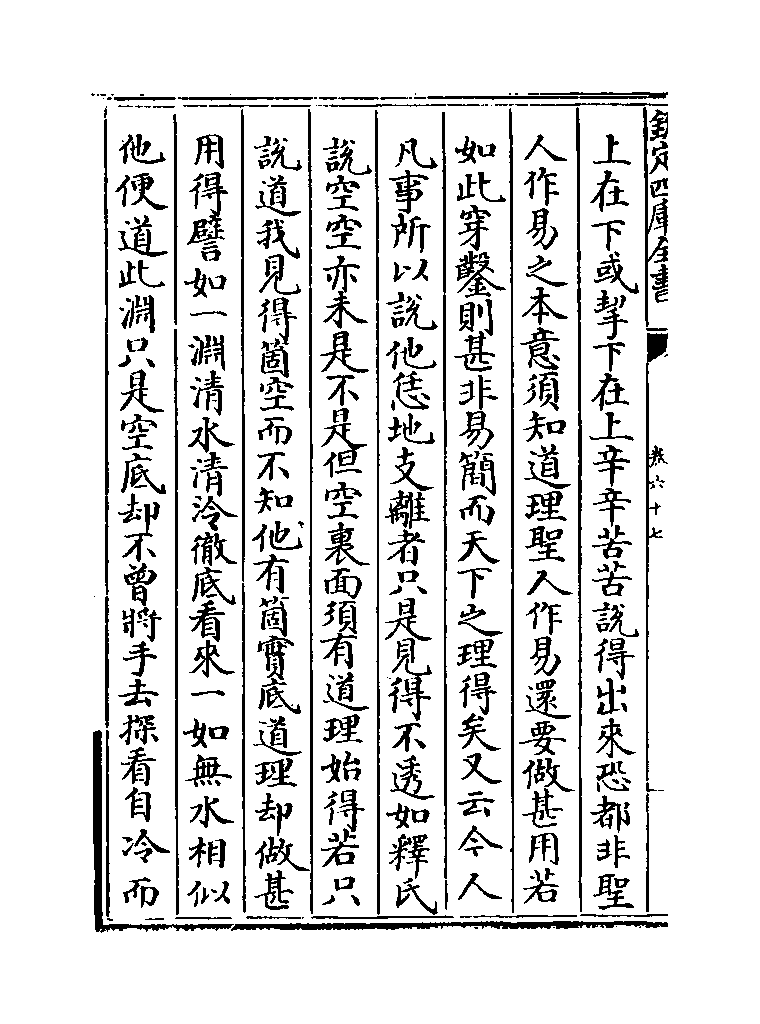 欽定四庫全書
卷六十七
上在下或挈下在上辛辛苦苦說得出來恐都非聖
人作易之本意須知道理聖人作易還要做甚用若
如此穿鑿則甚非易簡而天下之理得矣又云今人
凡事所以說他恁地支離者只是見得不透如釋氏
說空空亦未是不是但空裏面須有道理始得若只
說道我見得箇空而不知他有箇實底道理却做甚
用得譬如一淵清水清泠徹底看來一如無水相似
他便道此淵只是空底却不曾將手去探看自冷而